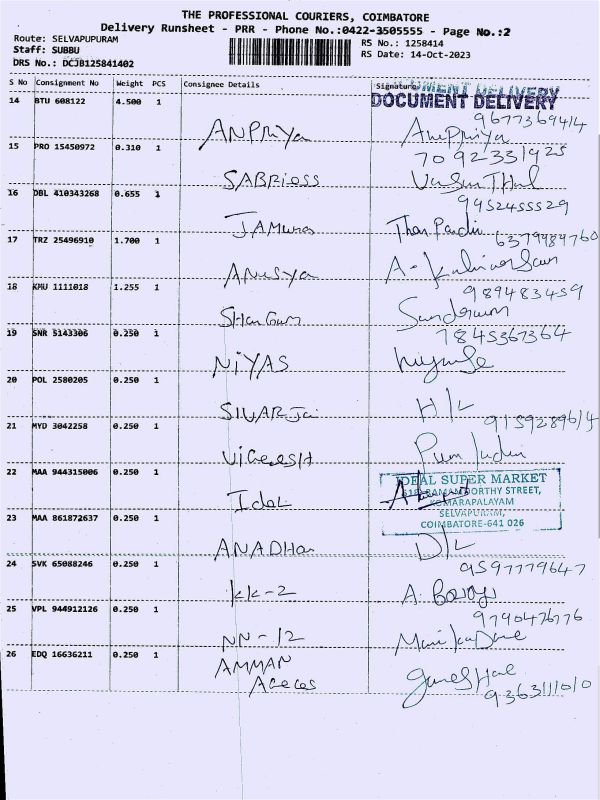 THE PROFESSIONAL COURIERS, COIMBATORE
Delivery Runsheet - PRR - Phone No.:0422-3505555 - Page No.:2
Route: SELVAPUPURAM
Staff: SUBBU
DRS No.: DCJB125841402
RS No.: 1258414
RS Date: 14-Oct-2023
S No Consignment No Weight PCS Consignee Details Signature
DOCUMENT DELIVERY
DOCUMENT DELIVERY
14 BTU 608122 4.500 1
9677369414
ANPRiya
15 PRO 15450972 0.310 1
7092331925
SABRiess
16 DBL 410343268 0.655 1
9952455529
JAMuna
17 TRZ 25496910 1.700 1
6379989760
Anusya
18 KMU 1111018 1.255 1
989483459
Shangum Sundaram
19 SNR 5143306 0.250 1
7845367364
NiYAS
20 POL 2580205 0.250 1
H/L
21 MYD 3042258 0.250 1
9159289614
VIGEESH
22 MAA 944315006 0.250 1
IDEAL SUPER MARKET
KOMARAPALAYAM
SELVAPURAM,
COIMBATORE-641 026
Idal
23 MAA 861872637 0.250 1
ANADHan D/L
24 SVK 65088246 0.250 1
9597779647
KK-2
25 VPL 944912126 0.250 1
9790476776
NN-12
26 EDQ 16636211 0.250 1
AMMAN
9363111010